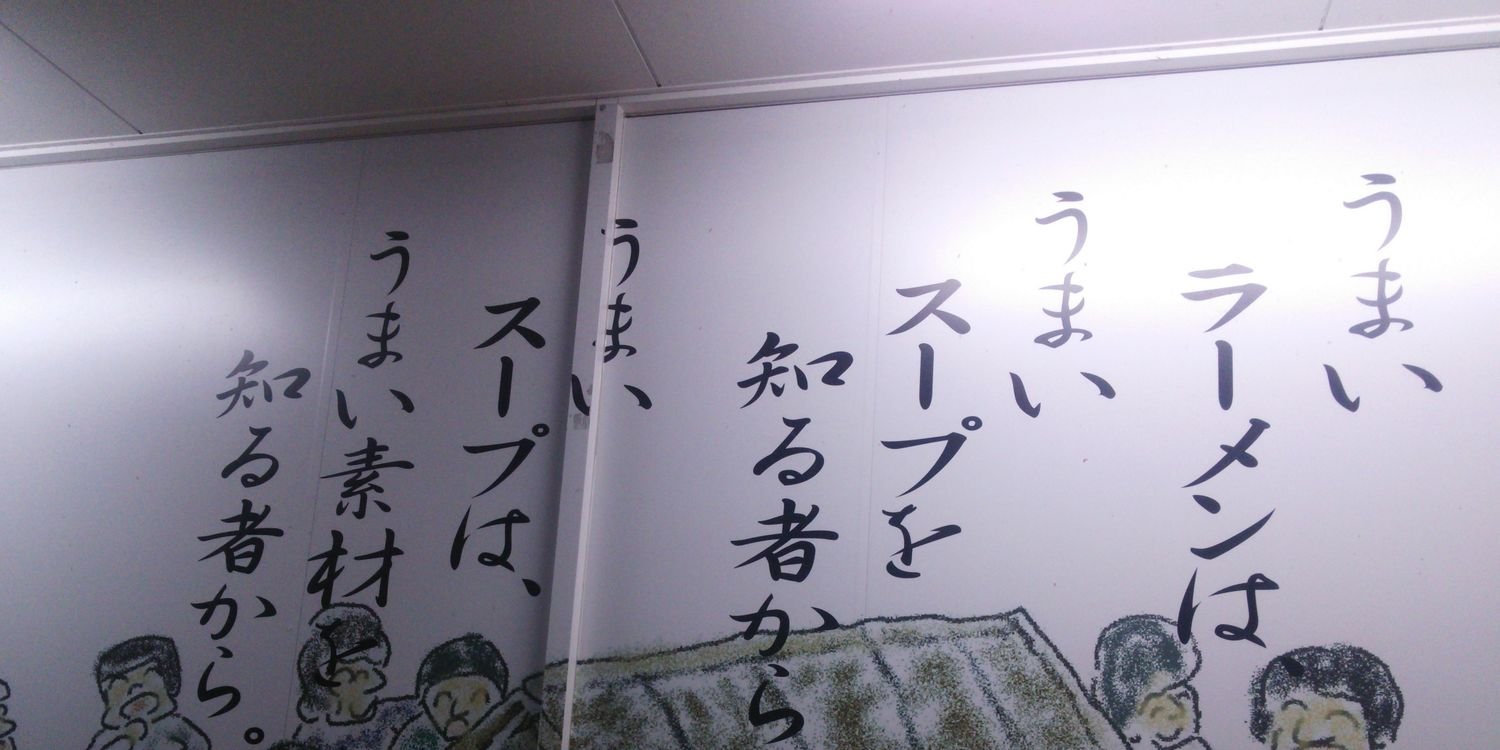 うまい
ラーメンは、
うまい
スープを
知る者から
うまい
スープは、
うまい素材を
知る者から。